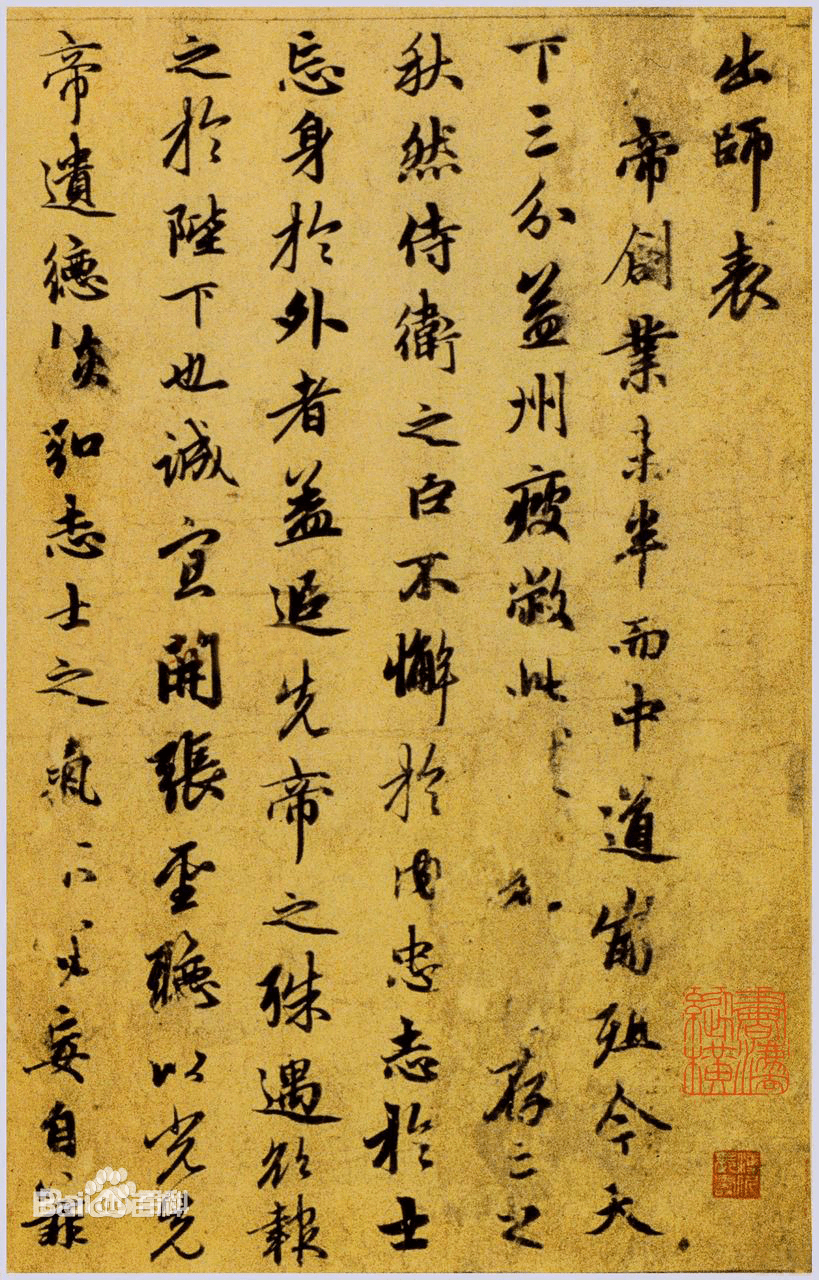 出師表
帝創業未半而中道崩殂今天
下三分益州疲敝此存亡之
秋然侍衛之臣不懈於內忠志於士
忘身於外者盖追先帝之殊遇欲報
之於陛下也誠宜開張聖聽以光先
帝遺德恢弘志士之氣不宜妄自菲
書灋縱橫
Bai百科